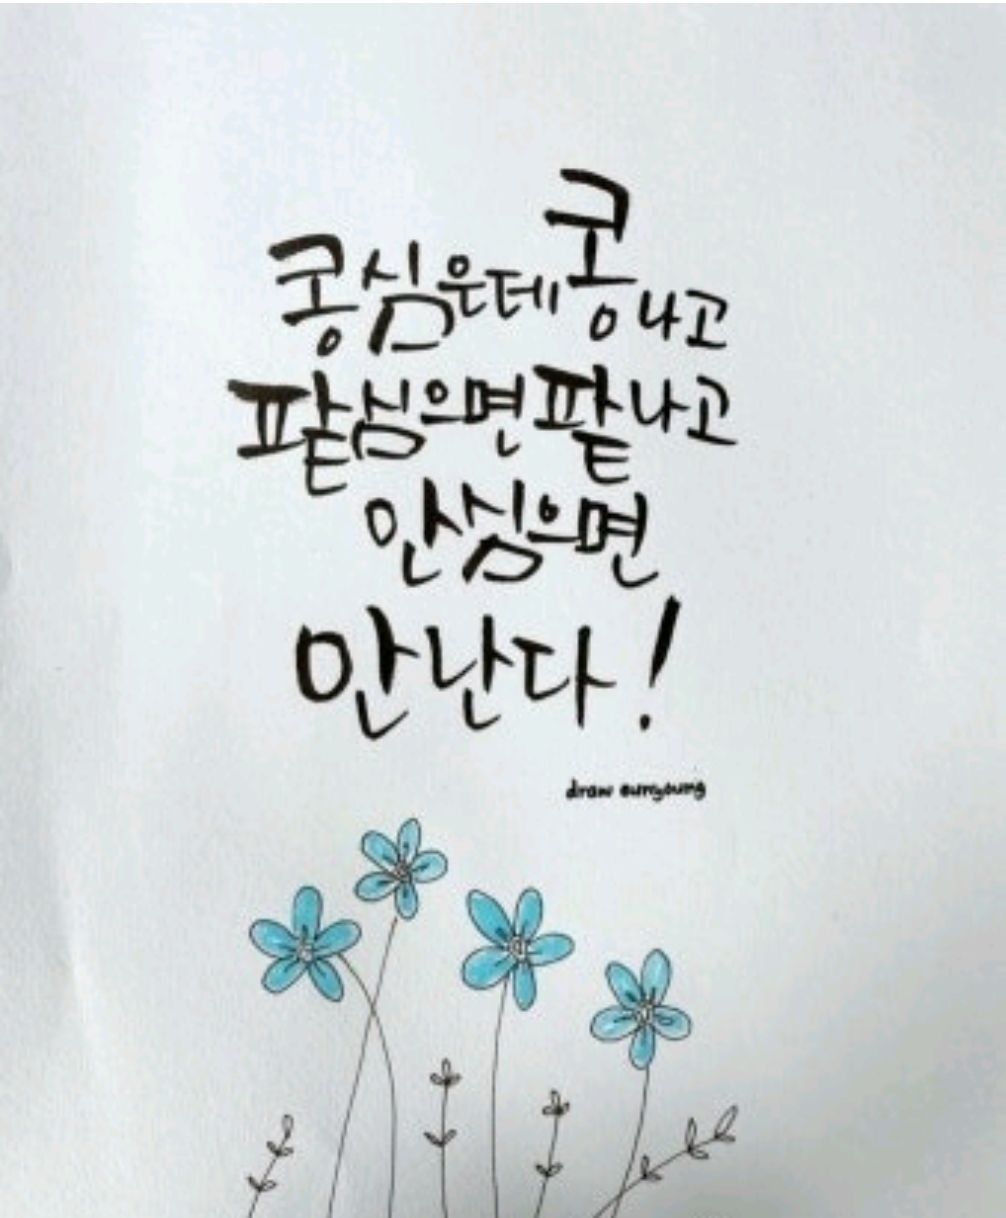 콩심은데콩나고
팥심으면팥나고
안심으면
안난다!
draw eunyoung